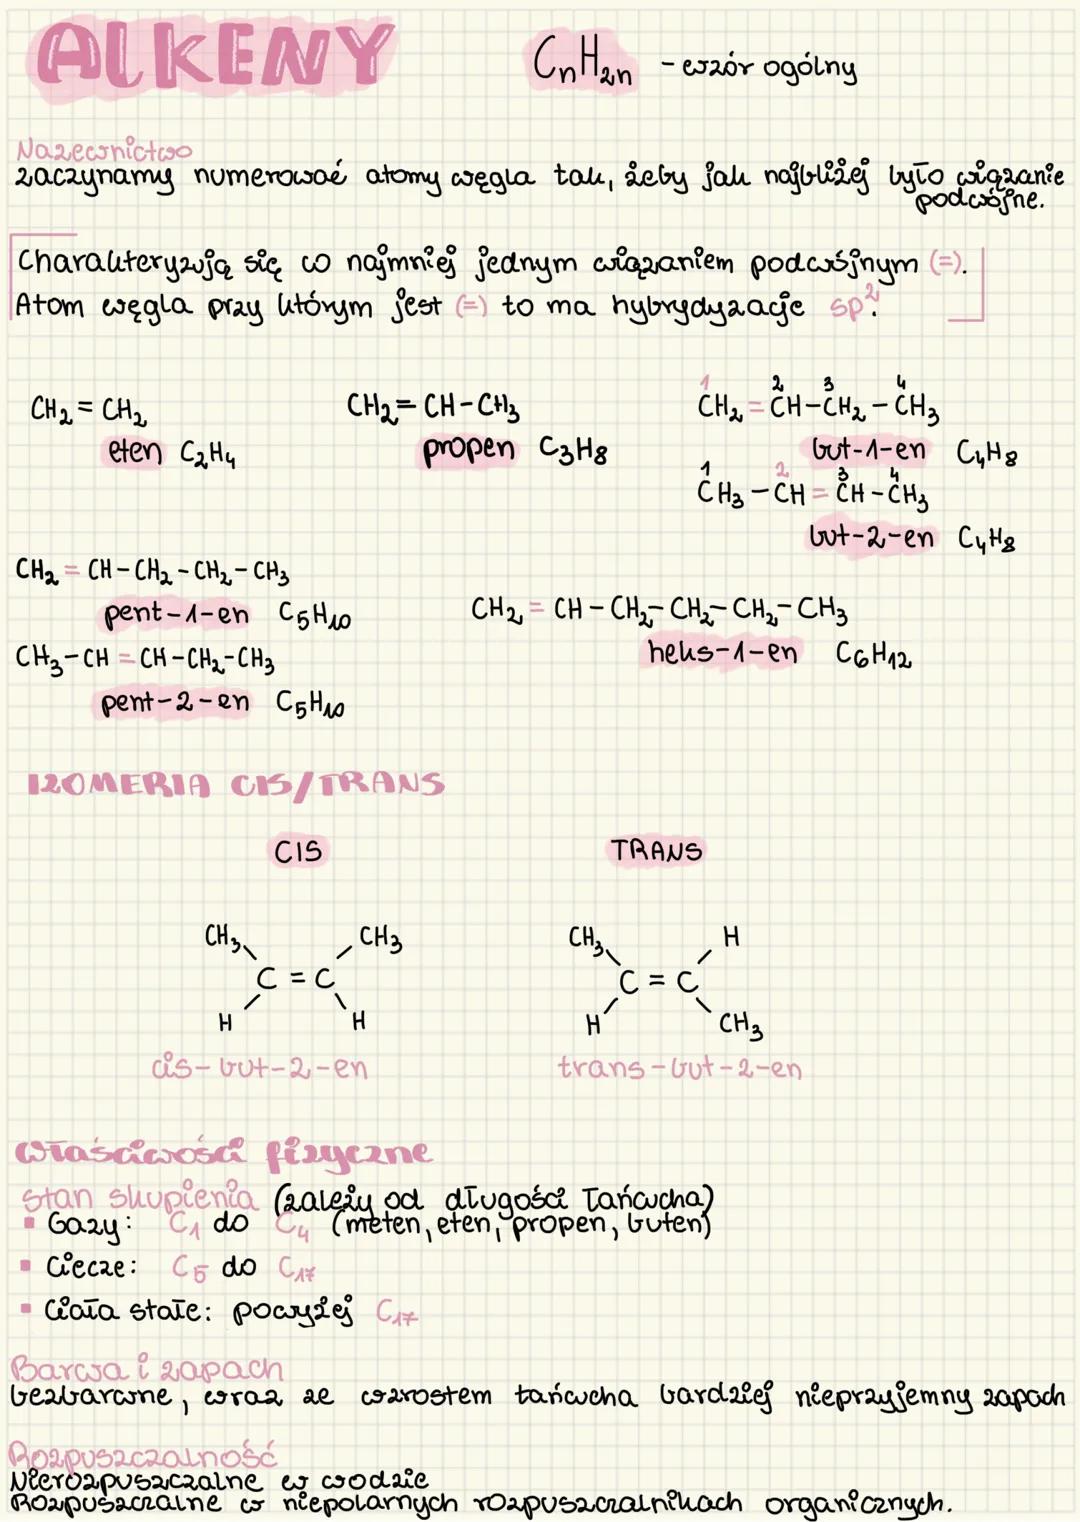 ALKENY
CnH2n - wzór ogólny
Nazewnictwo
zaczynamy numerować atomy węgla tak, żeby jak najbliżej było wiązanie
podwójne.
Charakteryzują się co najmniej jednym wiązaniem podwójnym (=).
Atom węgla przy którym jest (=) to ma hybrydyzacje sp².
CH2 = CH2
eten C2H4
CH2 = CH - CH3
propen C3H8
1 2 3 4
CH2 = CH - CH2 - CH3
but-1-en C4H8
1 2 3 4
CH3 - CH = CH - CH3
but-2-en C4H8
CH2 = CH - CH2 - CH2 - CH3
pent-1-en C5H10
CH3 - CH = CH - CH2 - CH3
pent-2-en C5H10
CH2 = CH - CH2 - CH2 - CH2 - CH3
heks-1-en C6H12
IZOMERIA CIS/TRANS
CIS
CH3 CH3
C = C
H H
cis-but-2-en
TRANS
CH3 H
C = C
H CH3
trans-but-2-en
właściwości fizyczne
stan skupienia (zależy od długości łańcucha)
▪ Gazy: C1 do C4 (meten, eten, propen, buten)
▪ Ciecze: C5 do C17
▪ Ciała stałe: powyżej C17
Barwa i zapach
bezbarwne, wraz ze wzrostem łańcucha bardziej nieprzyjemny zapach
Rozpuszczalność
Nierozpuszczalne w wodzie
Rozpuszczalne w niepolarnych rozpuszczalnikach organicznych.